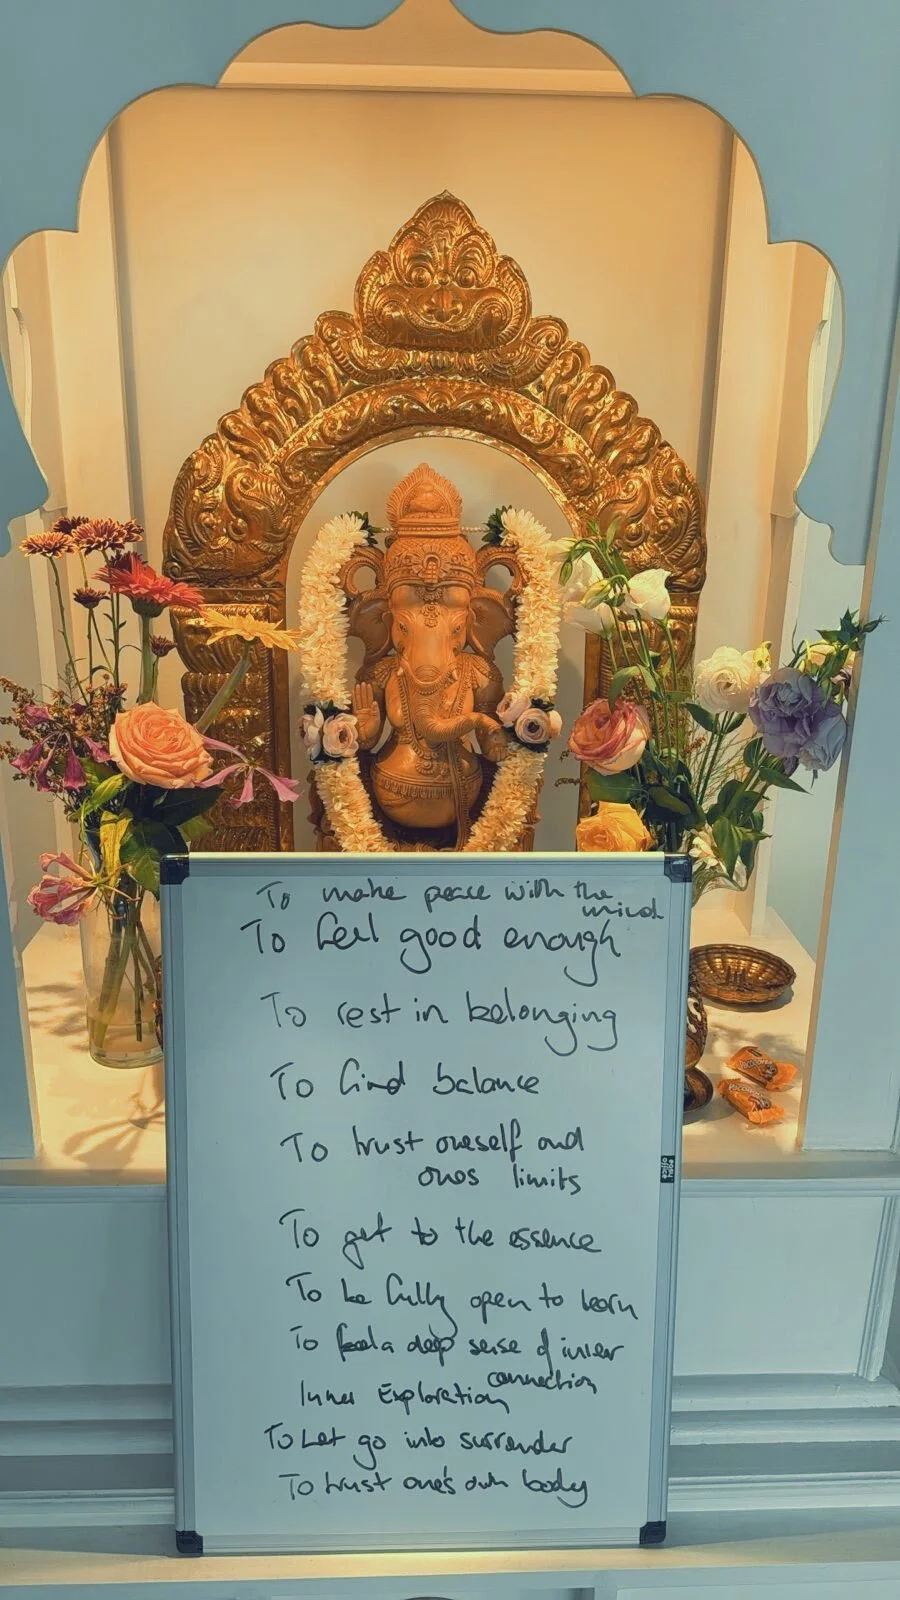 To make peace with the
mind
To feel good enough
To rest in belonging
To find balance
To trust oneself and
ones limits
To get to the essence
To be fully open to learn
To feel a deep sense of inner
connection
Inner Exploration
To Let go into surrender
To trust one's own body